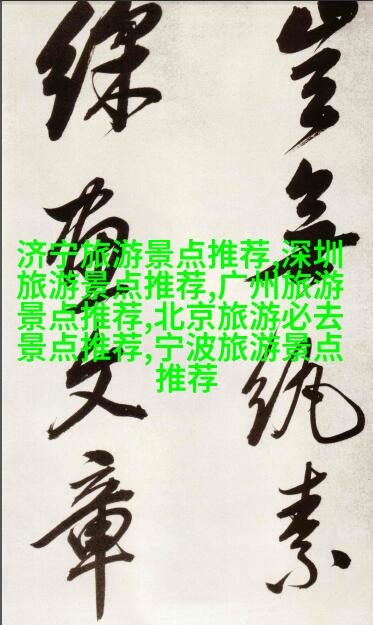 豈無紈素
綵畫文章
济宁旅游景点推荐,深圳
旅游景点推荐,广州旅游
景点推荐,北京旅游必去
景点推荐,宁波旅游景点
推荐